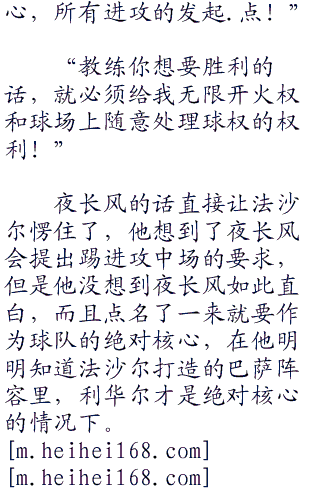 心，所有进攻的发起.点！”
“教练你想要胜利的
话，就必须给我无限开火权
和球场上随意处理球权的权
利！”
夜长风的话直接让法沙
尔愣住了，他想到了夜长风
会提出踢进攻中场的要求，
但是他没想到夜长风如此直
白，而且点名了一来就要作
为球队的绝对核心，在他明
明知道法沙尔打造的巴萨阵
容里，利华尔才是绝对核心
的情况下。
[m.heihei168.com]
[m.heihei168.com]